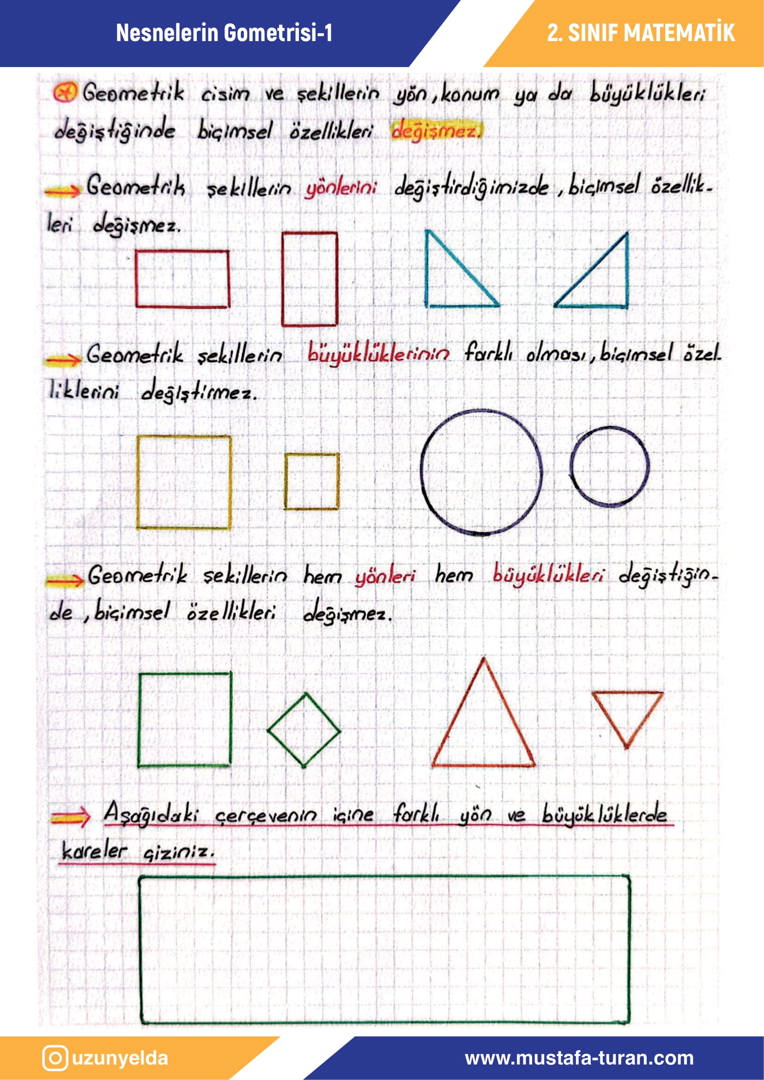 Nesnelerin Gometrisi-1
2. SINIF MATEMATİK
Geometrik cisim ve şekillerin yön, konum ya da büyüklükleri
değiştiğinde biçimsel özellikleri değişmez.
Geometrik şekillerin yönlerini değiştirdiğimizde, biçimsel özellik-
leri değişmez.
Geometrik şekillerin büyüklüklerinin farklı olması, biçimsel özel-
liklerini değiştirmez.
Geometrik şekillerin hem yönleri hem büyüklükleri değiştiğin-
de, biçimsel özellikleri değişmez.
Aşağıdaki çerçevenin içine farklı yön ve büyüklüklerde
kareler çiziniz.
uzunyelda
www.mustafa-turan.com